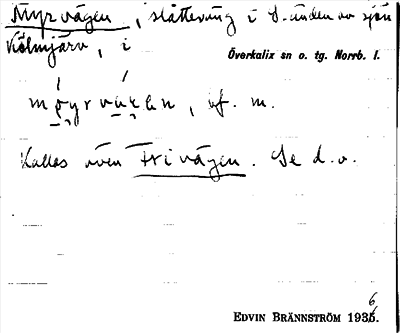 Myrvägen, slåtteväg i S. änden av sjön
Kölmjärv, i
Överkalix sn o. tg. Norrb. l.
bf. m.
Kallas även Frivägen. Se d. o.
EDVIN BRÄNNSTRÖM 1936.